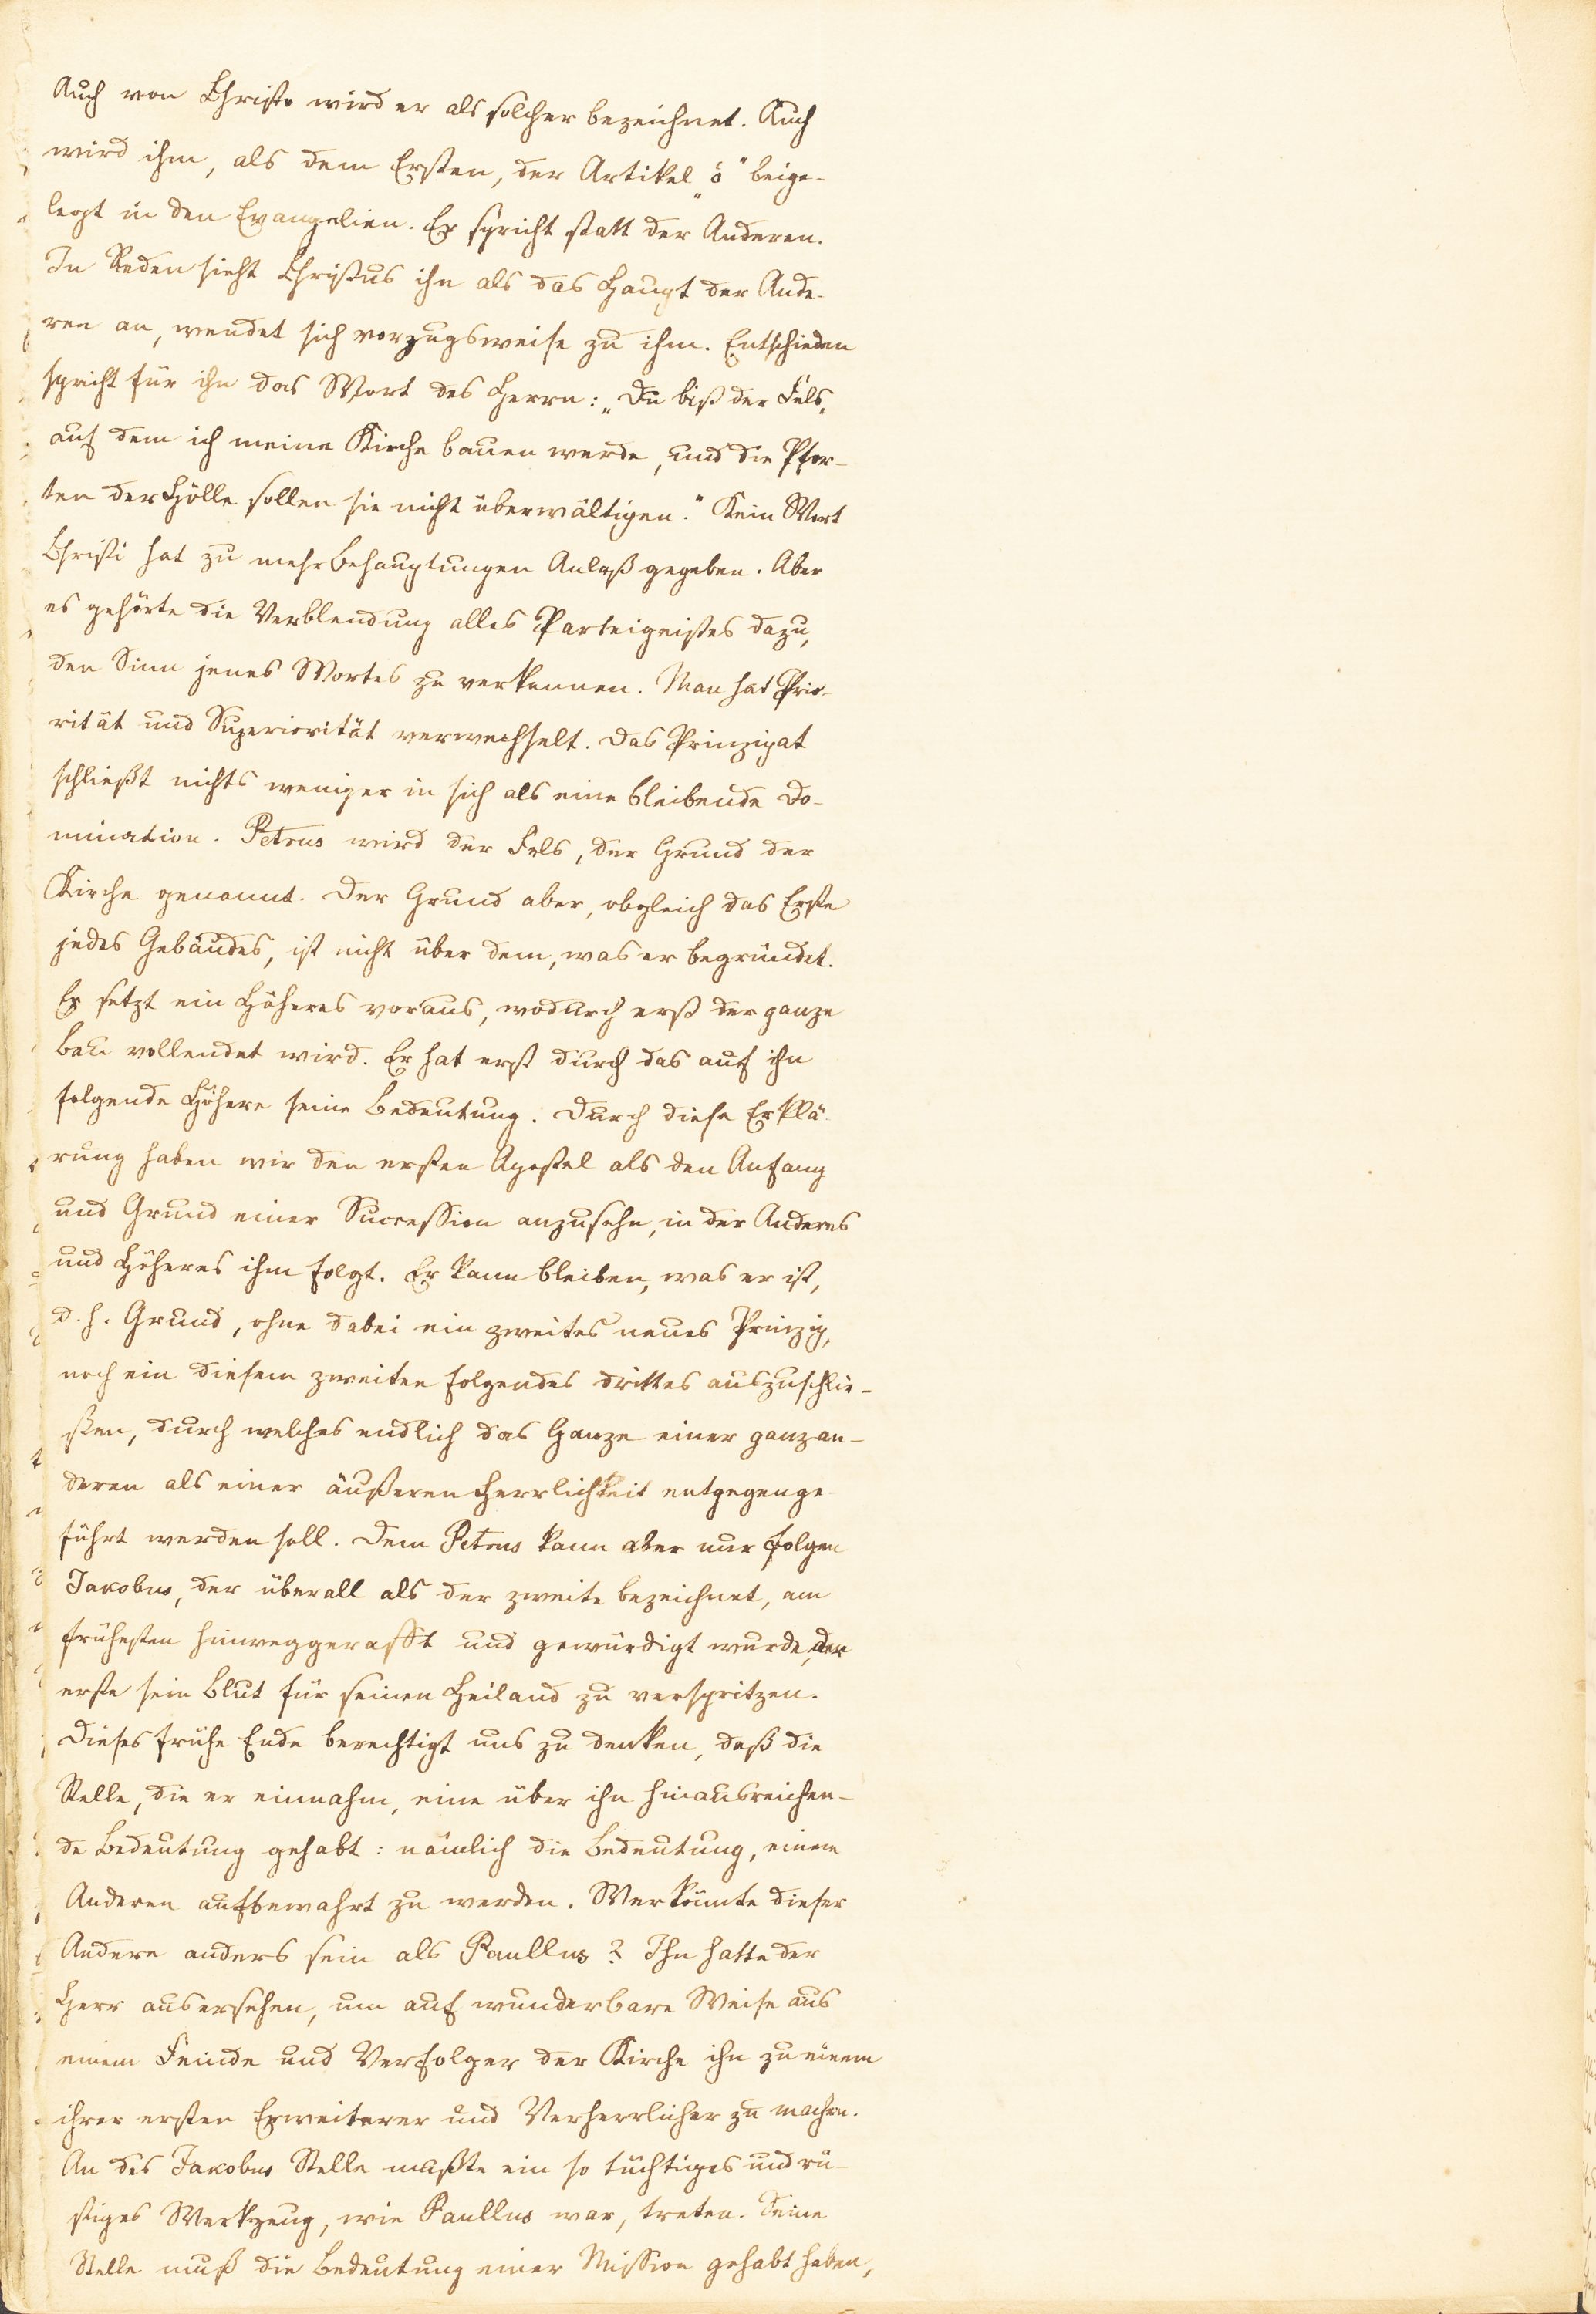 Auch von Christo wird er als solcher bezeichnet. Auch
wird ihm, als dem Ersten, der Artikel „ὁ“ beige-
legt in den Evangelien. Er spricht statt der Anderen.
In Reden sieht Christus ihn als das Haupt der Ande-
ren an, wendet sich vorzugsweise zu ihm. Entschieden
spricht für ihn das Wort des Herrn: „Du bist der Fels,
auf dem ich meine Kirche bauen werde, und die Pfor-
ten der Hölle sollen sie nicht überwältigen.“ Kein Wort
Christi hat zu mehr Behauptungen Anlaß gegeben. Aber
es gehörte die Verblendung alles Parteigeistes dazu,
den Sinn jenes Wortes zu verkennen. Man hat Prio-
rität und Superiorität verwechselt. Das Prinzipat
schließt nichts weniger in sich als eine bleibende Do-
mination. Petrus wird der Fels, der Grund der
Kirche genannt. Der Grund aber, obgleich das Erste
jedes Gebäudes, ist nicht über dem, was er begründet.
Er setzt ein Höheres voraus, wodurch erst der ganze
Bau vollendet wird. Er hat erst durch das auf ihn
folgende Höhere seine Bedeutung. Durch diese Erklä-
rung haben wir den ersten Apostel als den Anfang
und Grund einer Succession anzusehn, in der Anderes
und Höheres ihm folgt. Er kann bleiben, was er ist,
d. h. Grund, ohne dabei ein zweites neues Prinzip,
noch ein diesem zweiten folgendes drittes auszuschlie-
ßen, durch welches endlich das Ganze einer ganz an-
deren als einer äußeren Herrlichkeit entgegenge-
führt werden soll. Dem Petrus kann aber nur folgen
Jakobus, der überall als der zweite bezeichnet, am
frühesten hinweggerafft und gewürdigt wurde, der
erste sein Blut für seinen Heiland zu verspritzen.
Dieses frühe Ende berechtigt uns zu denken, daß die
Stelle, die er einnahm, eine über ihn hinausreichen-
de Bedeutung gehabt: nämlich die Bedeutung, einem
Anderen aufbewahrt zu werden. Wer könnte dieser
Andere anders sein als Paullus? Ihn hatte der
Herr ausersehen, um auf wunderbare Weise aus
einem Feinde und Verfolger der Kirche ihn zu einem
ihrer ersten Erweiterer und Verherrlicher zu machen.
An des Jakobus Stelle mußte ein so tüchtiges und rü-
stiges Werkzeug, wie Paullus war, treten. Seine
Stelle muß die Bedeutung einer Mission gehabt haben,